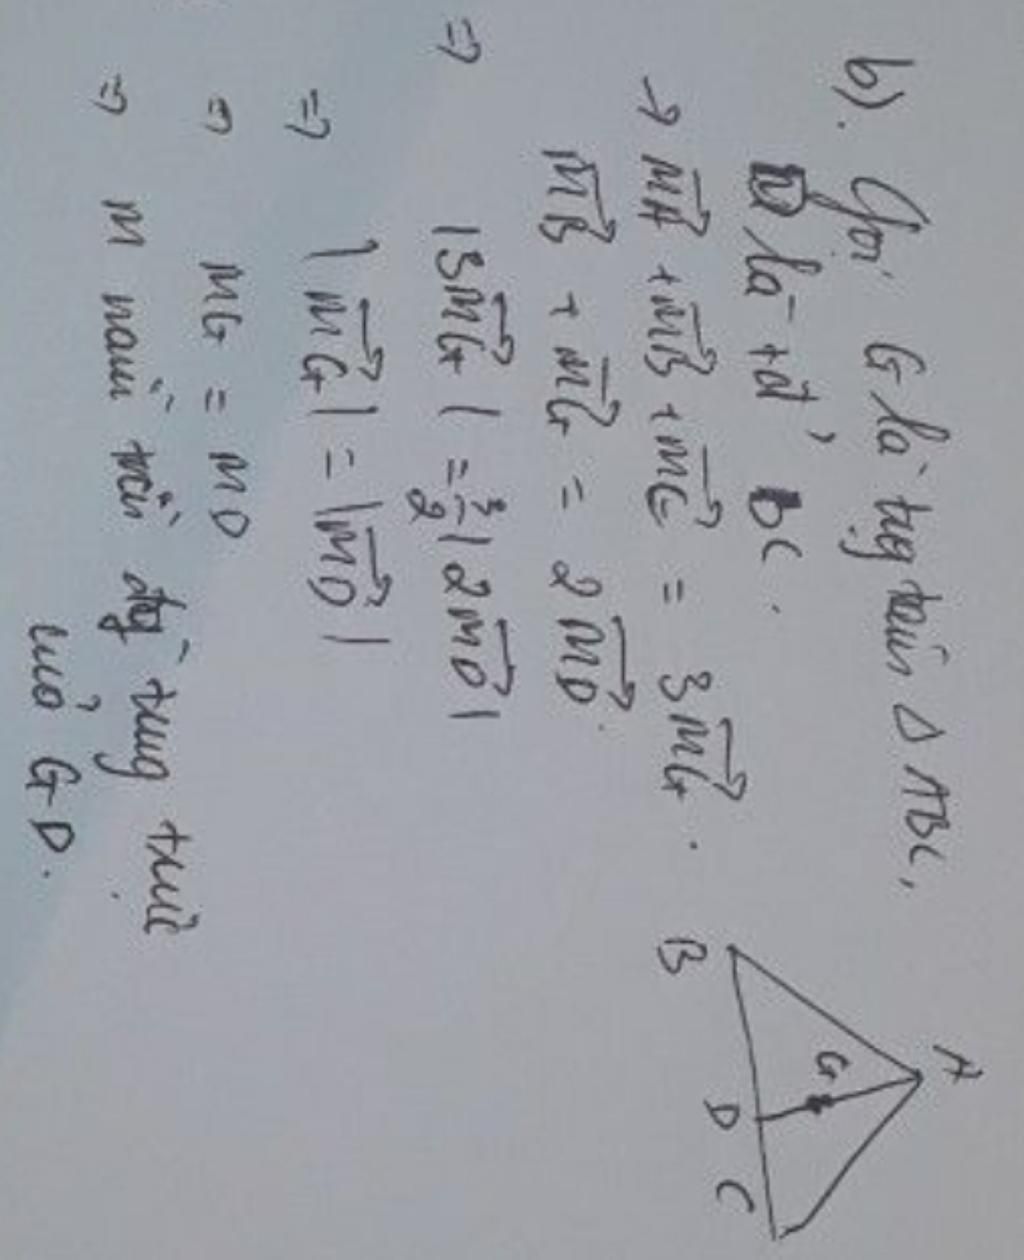 b). Gọi G là tụg tâm Δ ABC,
D là tđ' BC.
→ $\overrightarrow{MA}$ + $\overrightarrow{MB}$ + $\overrightarrow{MC}$ = 3$\overrightarrow{MG}$.
$\overrightarrow{MB}$ + $\overrightarrow{MG}$ = 2$\overrightarrow{MD}$.
⇒ |3$\overrightarrow{MG}$| = $\frac{3}{2}$|2$\overrightarrow{MD}$|
⇒ |$\overrightarrow{MG}$| = |$\overrightarrow{MD}$|
⇒ MG = MD
⇒ M nằm trên đg` trug trực
của GD.
A
G
B
D
C